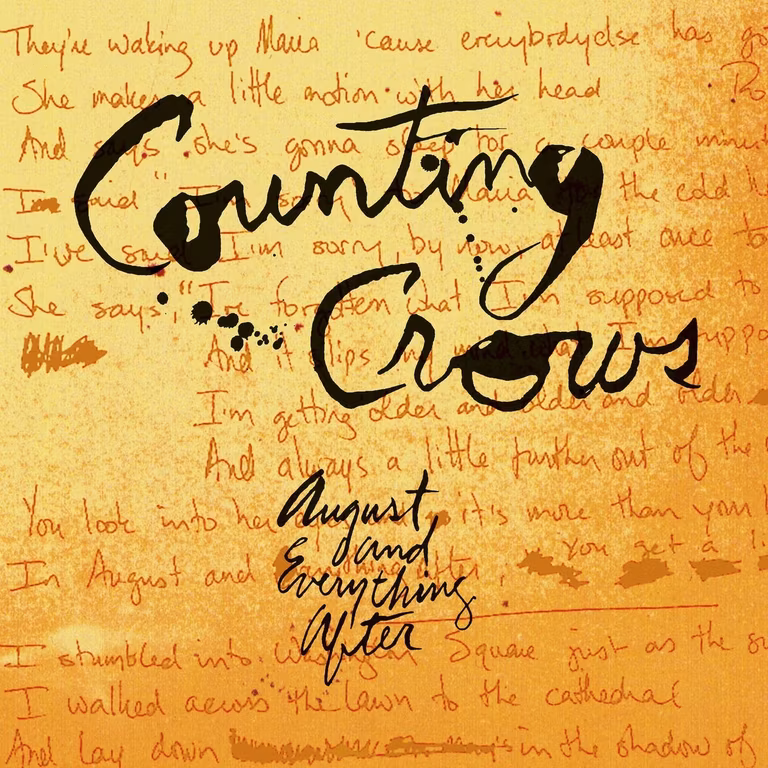 They're waking up Maria 'cause everybodyelse has go
She makes a little motion with her head
And says she's gonna sleep for a couple minut
Counting
I'm said "I'm sorry" to Maria for the cold he
I've said I'm sorry, by now, at least once to
She says, "I've forgotten what I'm supposed to
Crows
And it slips my mind what I'm suppo
I'm getting older and older and older
And always a little further out of the
August
and
Everything
After
You look into her it's more than your
In August and Everything After, you get a li
I stumbled into Washington Square just as the su
I walked across the lawn to the cathedral
And lay down in the shadow of